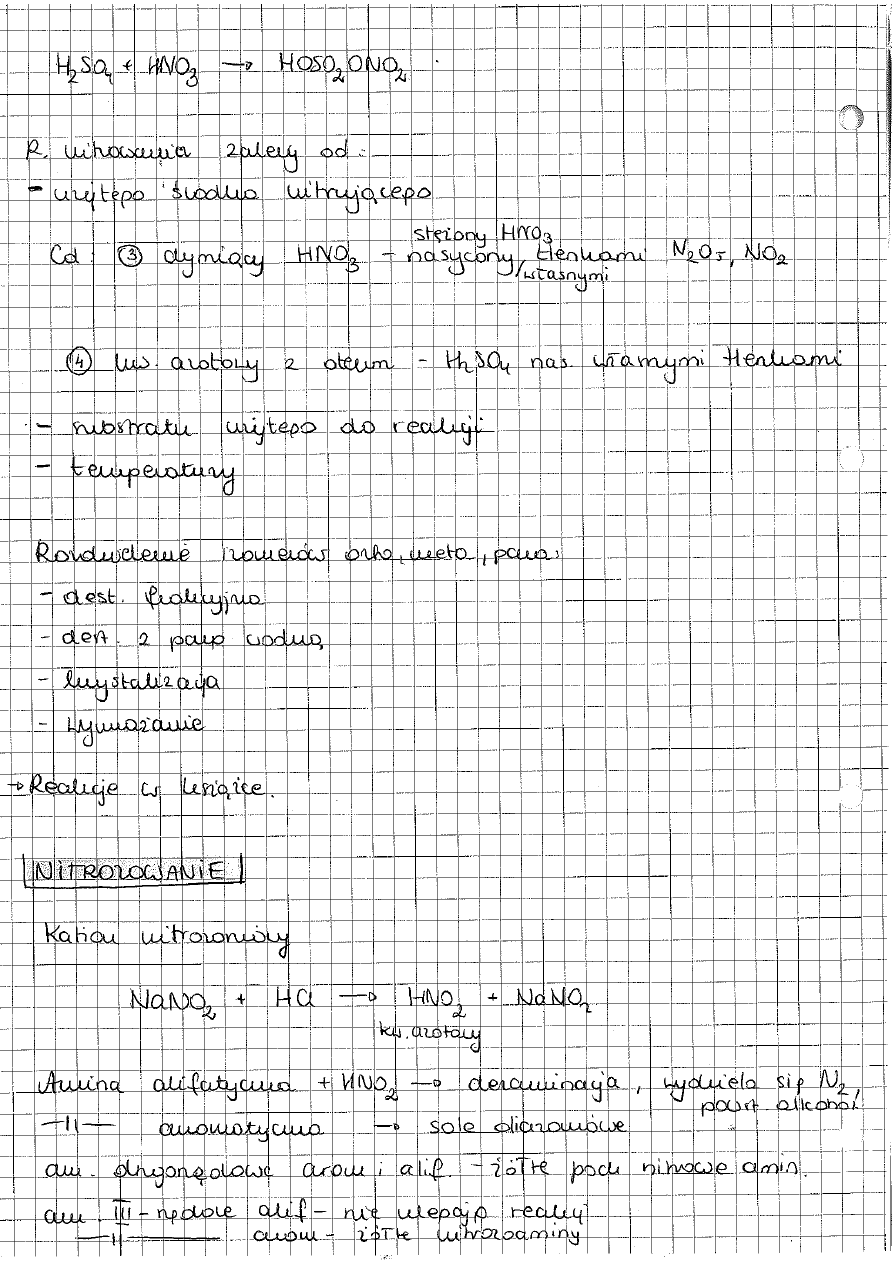 H₂SO₄ + HNO₃ → HOSO₂ONO₂
R. nitrowania zależy od:
- użytego środka nitrującego
stężony HNO₃
Cd ③ dymiący HNO₃ - nasycony tlenkami N₂O₅, NO₂
/własnymi
④ kw. azotowy z oleum - H₂SO₄ nas własnymi tlenkami
- substratu użytego do reakcji
- temperatury
Rozdzielenie izomerów orto, meta, para:
- dest. frakcyjna
- dest. z parą wodną
- krystalizacja
- wymrażanie
→ Reakcje w książce.
NITROZOWANIE
Kation nitrozoniowy
NaNO₂ + HCl → HNO₂ + NaNO₂
kw. azotawy
Amina alifatyczna + HNO₂ → dezaminacja, wydziela się N₂,
powst alkohol
—II— aromatyczna → sole diazoniowe
am. drugorzędowe arom i alif. - żółte poch nitrowe amin.
am. III-rzędowe alif - nie ulegają reakcji
—II— arom - żółte nitrozoaminy